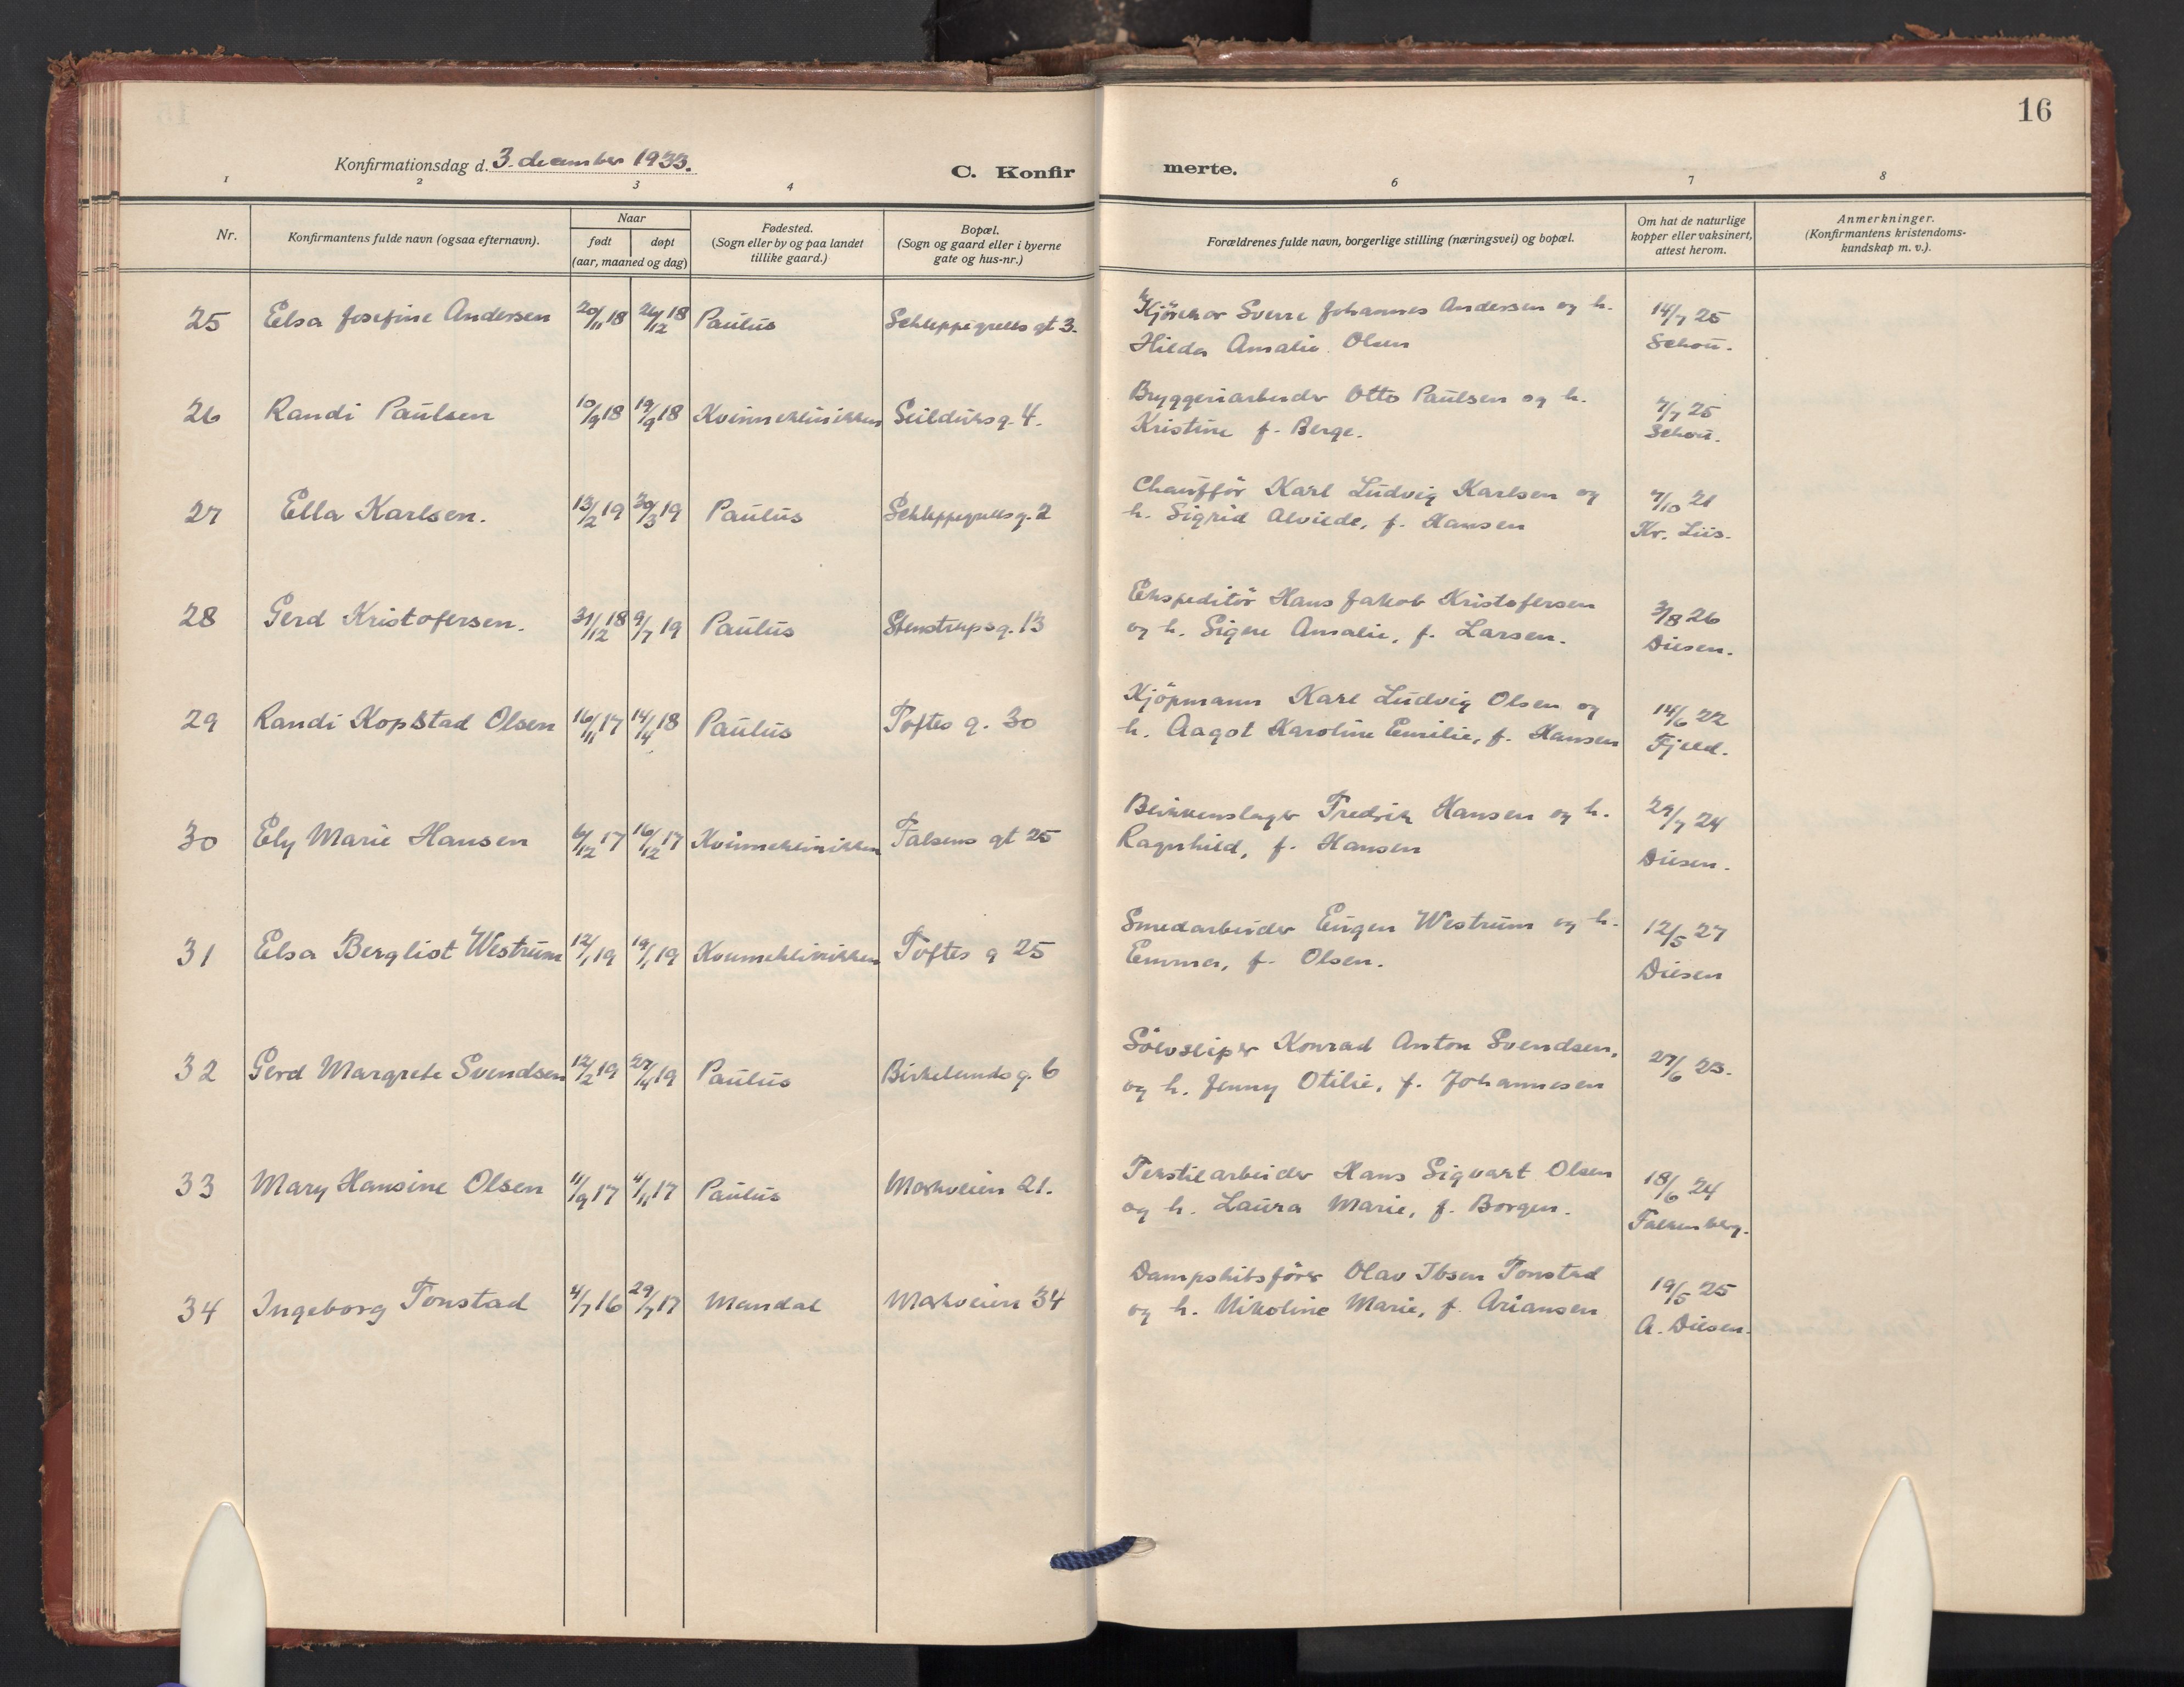 16
Konfirmationsdag d. 3. december 1933.
C. Konfir merte.
1 2 3 4 6 7 8
Nr. Konfirmantens fulde navn (ogsaa efternavn). Naar født døpt (aar, maaned og dag) Fødested. (Sogn eller by og paa landet tillike gaard.) Bopæl. (Sogn og gaard eller i byerne gate og hus-nr.) Forældrenes fulde navn, borgerlige stilling (næringsvei) og bopæl. Om hat de naturlige kopper eller vaksinert, attest herom. Anmerkninger. (Konfirmantens kristendoms-kundskap m. v.).
25 Elsa Josefine Andersen 20/11 18 26/12 18 Paulus Schleppegrells gt 3. Sverre Johannes Andersen og h. 14/7 25
Hilda Amalie Olsen Schou.
26 Randi Paulsen 10/9 18 19/9 18 Kvinneklinikken Seilduksg. 4. Bryggeriarbeider Otto Paulsen og h. 7/7 25
Kristine f. Berge. Schou.
27 Ella Karlsen. 13/2 19 30/3 19 Paulus Schleppegrellsg. 2 Chaufför Karl Ludvig Karlsen og 7/10 21
h. Sigrid Alvilde, f. Hansen Kr. Lüs.
28 Gerd Kristofersen. 31/12 18 9/7 19 Paulus Stenstrupsg. 13 Ekspeditör Hans Jakob Kristofersen 3/8 26
og h. Signe Amalie, f. Larsen. Diesen.
29 Randi Kopstad Olsen 16/11 17 14/4 18 Paulus Toftes g. 30 Kjöpmann Karl Ludvig Olsen og 14/6 22
h. Aagot Karoline Emilie, f. Hansen Fjeld.
30 Ely Marie Hansen 6/12 17 16/12 17 Kvinneklinikken Falsens gt 25 Blikkenslager Fredrik Hansen og h. 29/7 24
Ragnhild, f. Hansen Diesen.
31 Elsa Bergliot Westrum 12/1 19 19/1 19 Kvinneklinikken Toftes g 25 Smedarbeider Eugen Westrum og h. 12/5 27
Emma, f. Olsen. Diesen
32 Gerd Margrete Svendsen 12/2 19 27/4 19 Paulus Birkelunds g. 6 Sölvsliper Konrad Anton Svendsen, 27/6 23.
og h. Jenny Otilie, f. Johannesen
33 Mary Hansine Olsen 11/9 17 4/11 17 Paulus Markveien 21. Tekstilarbeider Hans Sigvart Olsen 18/6 24
og h. Laura Marie, f. Borgen. Falkenberg.
34 Ingeborg Tonstad 4/7 16 29/7 17 Mandal Markveien 34 Dampskibsförer Olav Ibsen Tonstad 19/5 25
og h. Nikoline Marie, f. Ariansen A. Diesen.